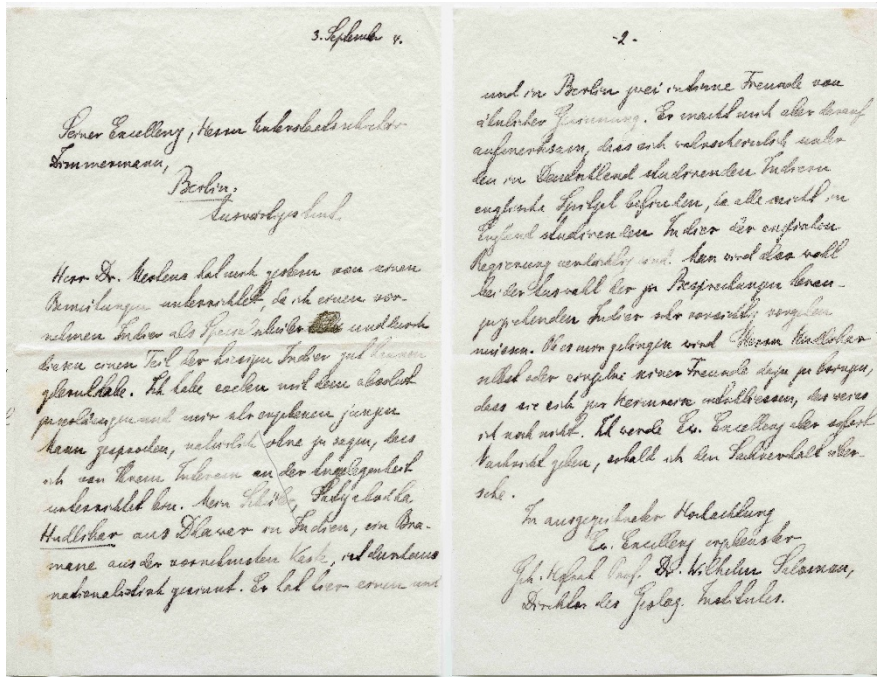 3. September 4.
Seiner Excellenz, Herrn Unterstaatssekretär
Zimmermann,
Berlin.
Auswärtiges Amt.
Herr Dr. Mertens hat mich gestern von seinen
Bemühungen unterrichtet, da ich einen vor-
nehmen Indier als Spezialschüler und durch
diesen einen Teil der hiesigen Indier gut kennen
gelernt habe. Ich habe soeben mit dem absolut
zuverlässigen und mir sehr ergebenen jungen
Mann gesprochen, natürlich ohne zu sagen, dass
ich von Ihrem Interesse an der Angelegenheit
unterrichtet bin. Mein Schüler,
Hudlikar aus Dharwar in Indien, ein Bra-
mane aus der vornehmsten Kaste, ist durchaus
nationalistisch gesinnt. Er hat hier einen und
-2-
und in Berlin zwei intime Freunde von
ähnlicher Gesinnung. Er macht mich aber darauf
aufmerksam, dass sich wahrscheinlich unter
den in Deutschland studirenden Indiern
englische Spitzel befinden, da alle nicht in
England studirenden Indier der englischen
Regierung verdächtig sind. Man wird also wohl
bei der Auswahl der zu Besprechungen heran-
zuziehenden Indier sehr vorsichtig vorgehen
müssen. Ob es mir gelingen wird Herrn Hudlikar
selbst oder einzelne seiner Freunde dazu zu bringen,
dass sie sich zur Heimreise entschliessen, das weiss
ich noch nicht. Ich werde Ew. Excellenz aber sofort
Nachricht geben, sobald ich den Sachverhalt über-
sehe.
In ausgezeichneter Hochachtung
Ew. Excellenz ergebenster
Geh. Hofrat Prof. Dr. Wilhelm Salomon,
Direktor des Geolog. Institutes.